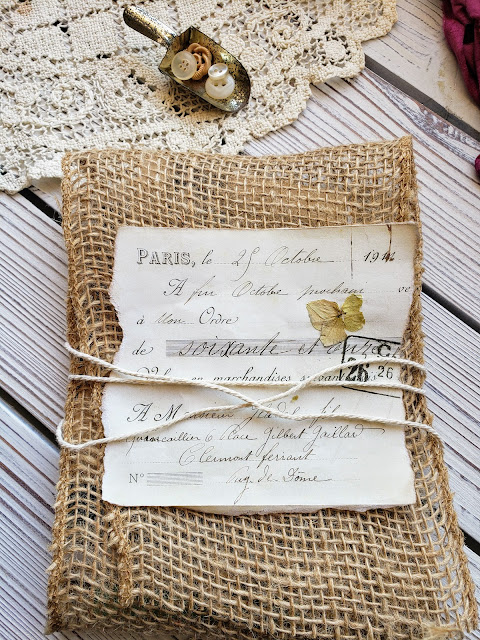 PARIS, le 25 Octobre 194
A fin Octobre prochain ve
à Mon Ordre
de soixante et onze
en marchandises suivant
26 26
A Monsieur
6 Place Gilbert Gaillard
Clermont ferrant
Puy de Dome
N°